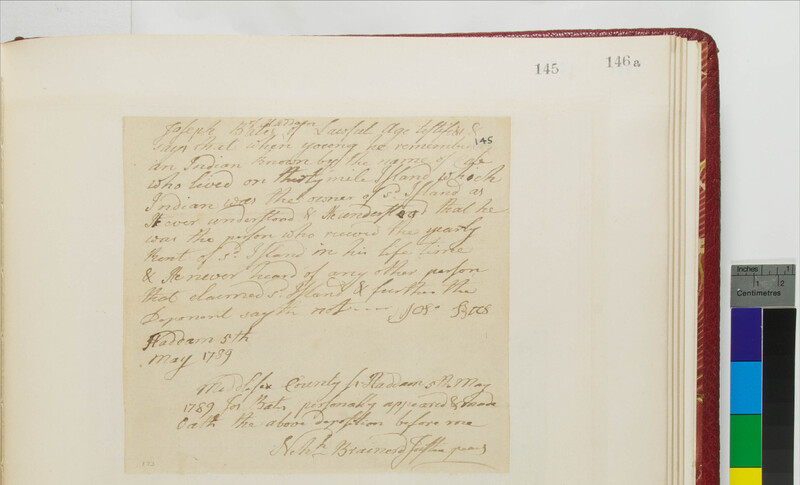 145
146a
of Haddam
Joseph Bates of Lawful Age testifies &
says that when young he remembers
145
an Indian known by the name of
who lived on thirty mile Island which
Indian was the owner of sd. Island as
He ever understood & He understood that he
was the person who recieved the yearly
Rent of sd. Island in his life time
& He never heard of any other person
that claimed sd. Island & further the
Deponent sayth not
Haddam 5th
May 1789
Middlesex County ss Haddam 5th May
1789 Jos Bates personally appeared & made
Oath the above deposition before me
Nehh. Brainerd Justice peace
inches 1
1 2
Centimetres